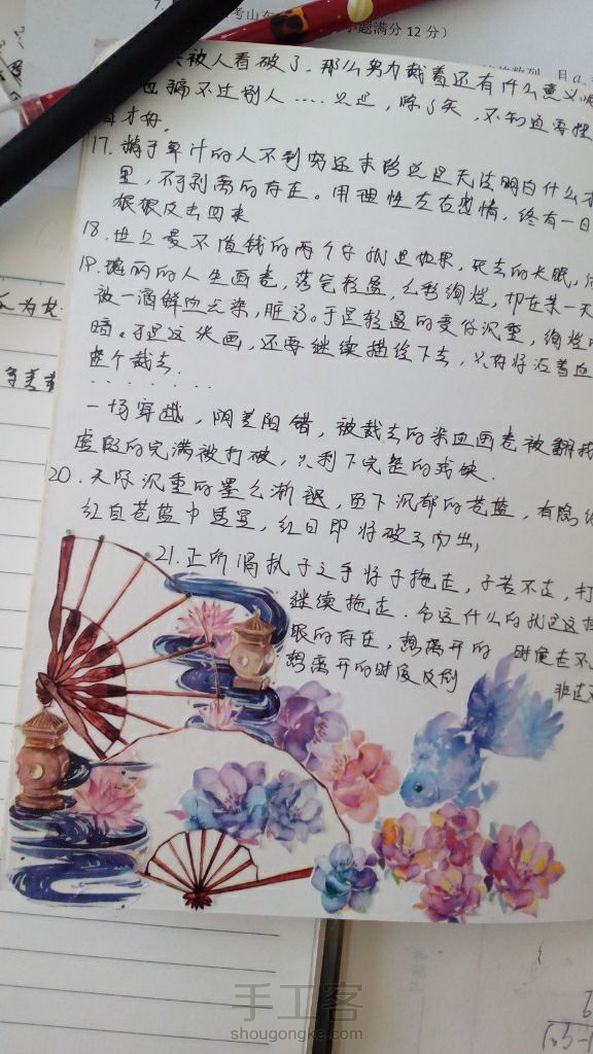 考山东
小题满分12分)
数列,且a
被人看破了.那么努力戴着还有什么意义呢
骗不过别人.....只是,除了笑,不知道要
才好.
17.精于算计的人不到穷途末路总是无法明白什么才
里,不可剥离的存在。用理性左右感情,终有一日
狠狠反击回来
18.世上最不值钱的两个字就是如果,死去的长眠,
19.瑰丽的人生画卷,落笔轻盈,色彩绚烂,却在某一天
被一滴鲜血点染,脏了。于是轻盈的变得沉重,绚烂
暗。于是这张画,还要继续描绘下去,只有将沾着血
整个裁去.
........
一场穿越,阴差阳错,被裁去的染血画卷被翻找
虚假的完满被打破,只剩下完整的残缺.
20.天际沉重的墨色渐褪,留下沉郁的苍蓝,有隐约
红自苍蓝中透望,红日即将破云而出,
21.正所谓执子之手将子拖走,子若不走,打
继续拖走.命运什么的就是这
眼的存在,想离开的 时候走不
想离开的时候反倒
非走不
手工客
shougongke.com